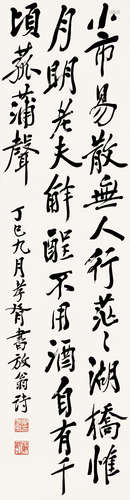 小市易散無人行茫〻湖橋惟
月明老夫解酲不用酒自有千
頃菰蒲聲
丁巳九月孝胥書放翁詩